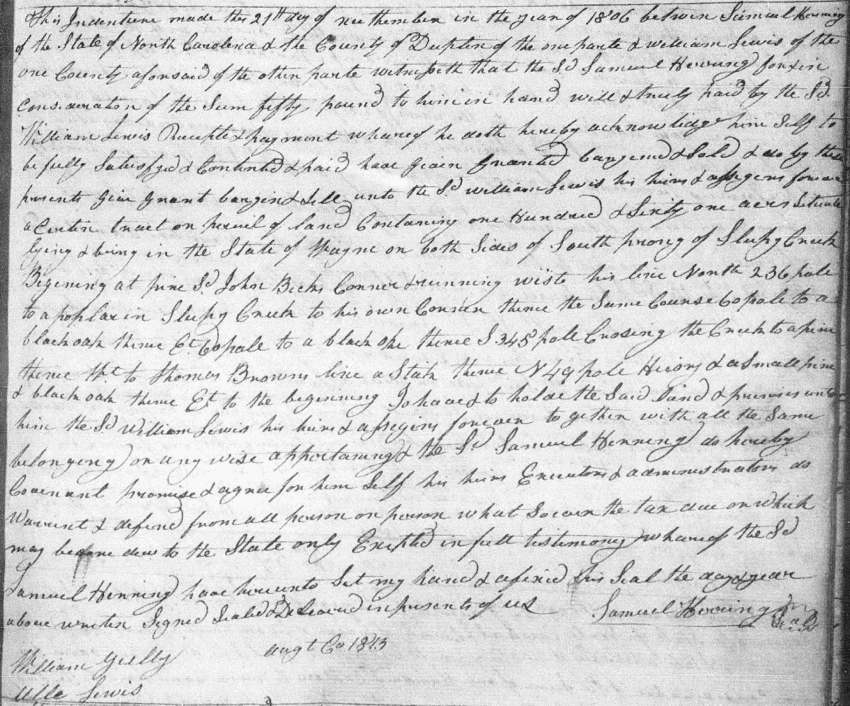 This Indenture made this 21th day of in the year of 1806 betwen Samuel Herring
of the State of North Carolina & the County of Duplin of the one parte & william Lewis of the
one County aforsaid of the other parte witnesseth that the Sd Samuel Herring for & in
consideration of the Sum fifty pound to him in hand will & truly paid by the Sd
William Lewis Receipte & payment whareof he doth hereby acknowledge him Self to
be fully Satisfyed & Contented & paid have given Granted bargened & Sold & do by these
presents Give Grant bargen & Sell unto the Sd william Lewis his hiers & assegens forever
a Certen tract or percil of land Contaning one Hundred & Sixty one acers Situate
lying & being in the State of Wayne on both Sides of South prong of Sleepy Creek
Begening at pine Sd John Becks Conner & running his line North 236 pole
to a poplar in Sleepy Creek to his own Connen thence the Same Counse 60 pole to a
black oak thence Et 60 pole to a black oke thence S 345 pole Crosing the Creek to a pine
thence Wt to Thomas Browns line a Stak thence N 49 pole Hicory & a Small pine
& black oak thence Et to the beginning To have & to holde the Said land & premises unto
him the Sd William Lewis his hiers & assegens forever to gether with all the Same
belonging or any wise appertaning & the Sd Samuel Henning do hereby
Covenant promise & agree for him Self his hiers Executors & administrators do
Warrent & defend from all person or person what Soever the tax due or which
may become dew to the State only Excepted in full testimony whareof the Sd
Samuel Henning have hereunto Set my hand & afixed this Seal the day & year
above writen Signed Sealed & Deleavred in presents of us Samuel Herring Seal
augt Co 1813
William
Lewis